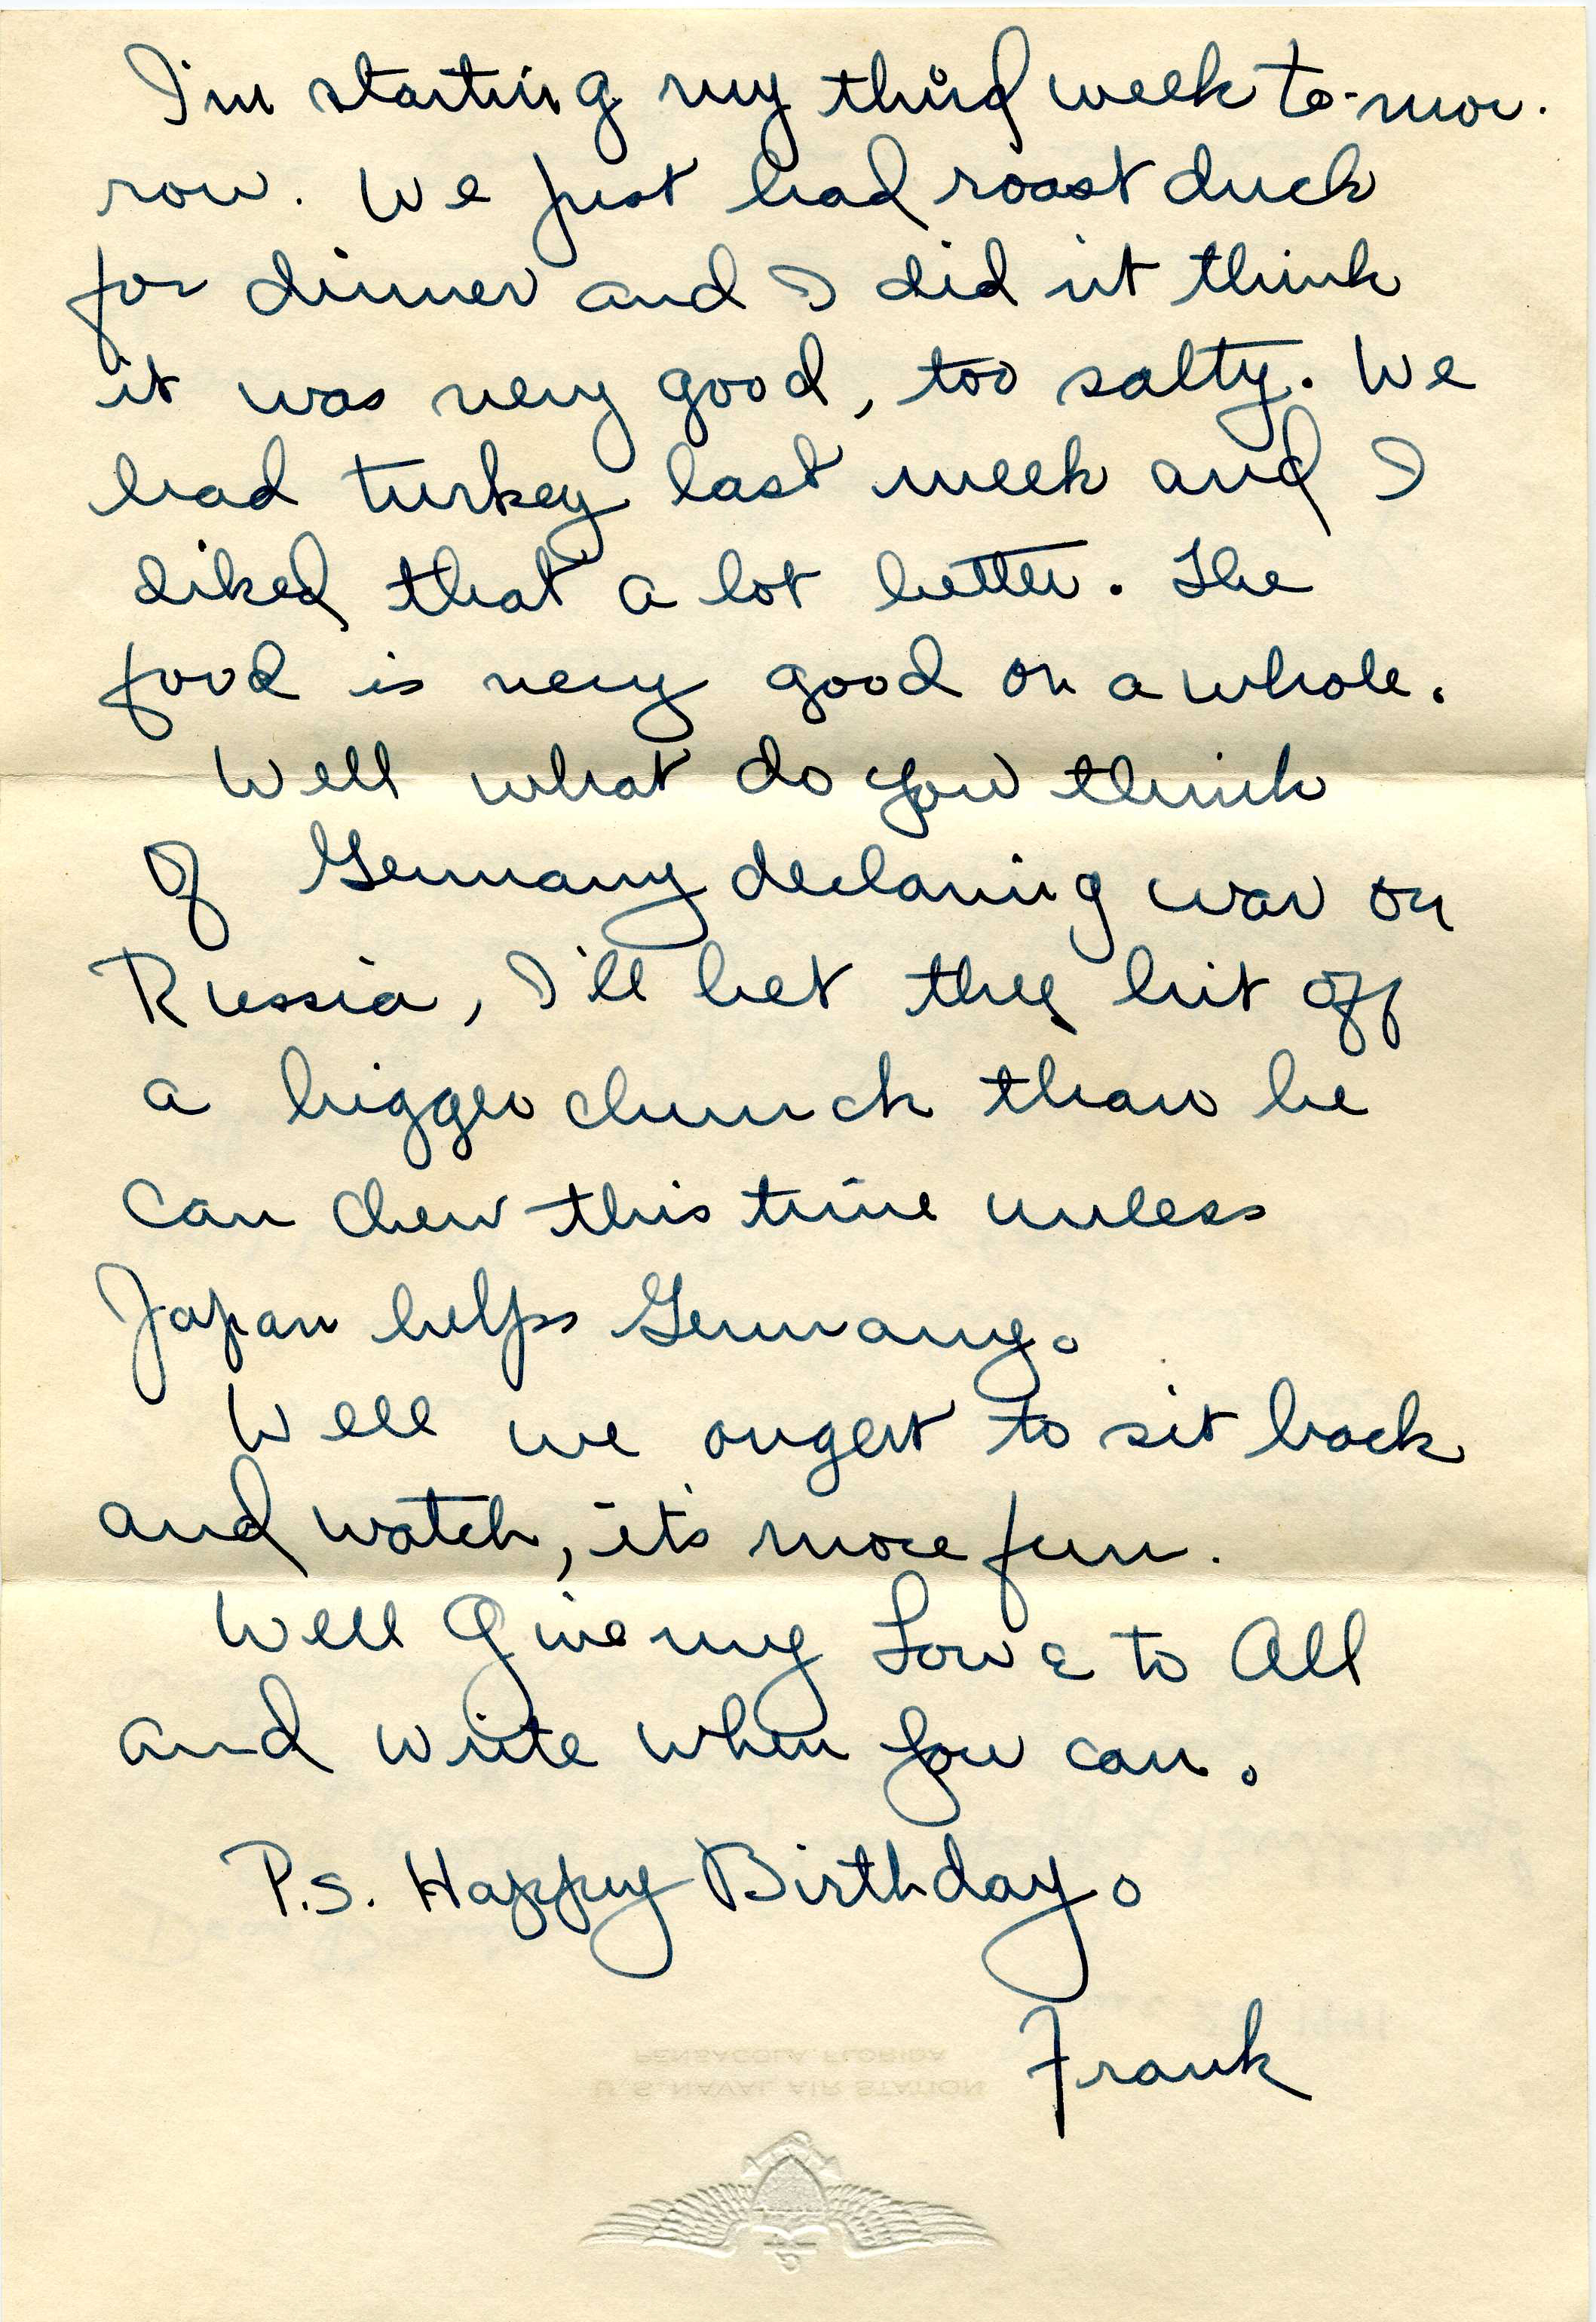 I'm starting my third week to-mor-
row. We just had roast duck
for dinner and I did n't think
it was very good, too salty. We
had turkey last week and I
liked that a lot better. The
food is very good on a whole.
Well what do you think
of Germany declaring war on
Russia, I'll bet they bit off
a bigger chunck than he
can chew this time unless
Japan helps Germany.
Well we ought to sit back
and watch, it's more fun.
Well Give my Love to All
and write when you can.
P.S. Happy Birthday.
Frank
PENSACOLA, FLORIDA
U. S. NAVAL AIR STATION